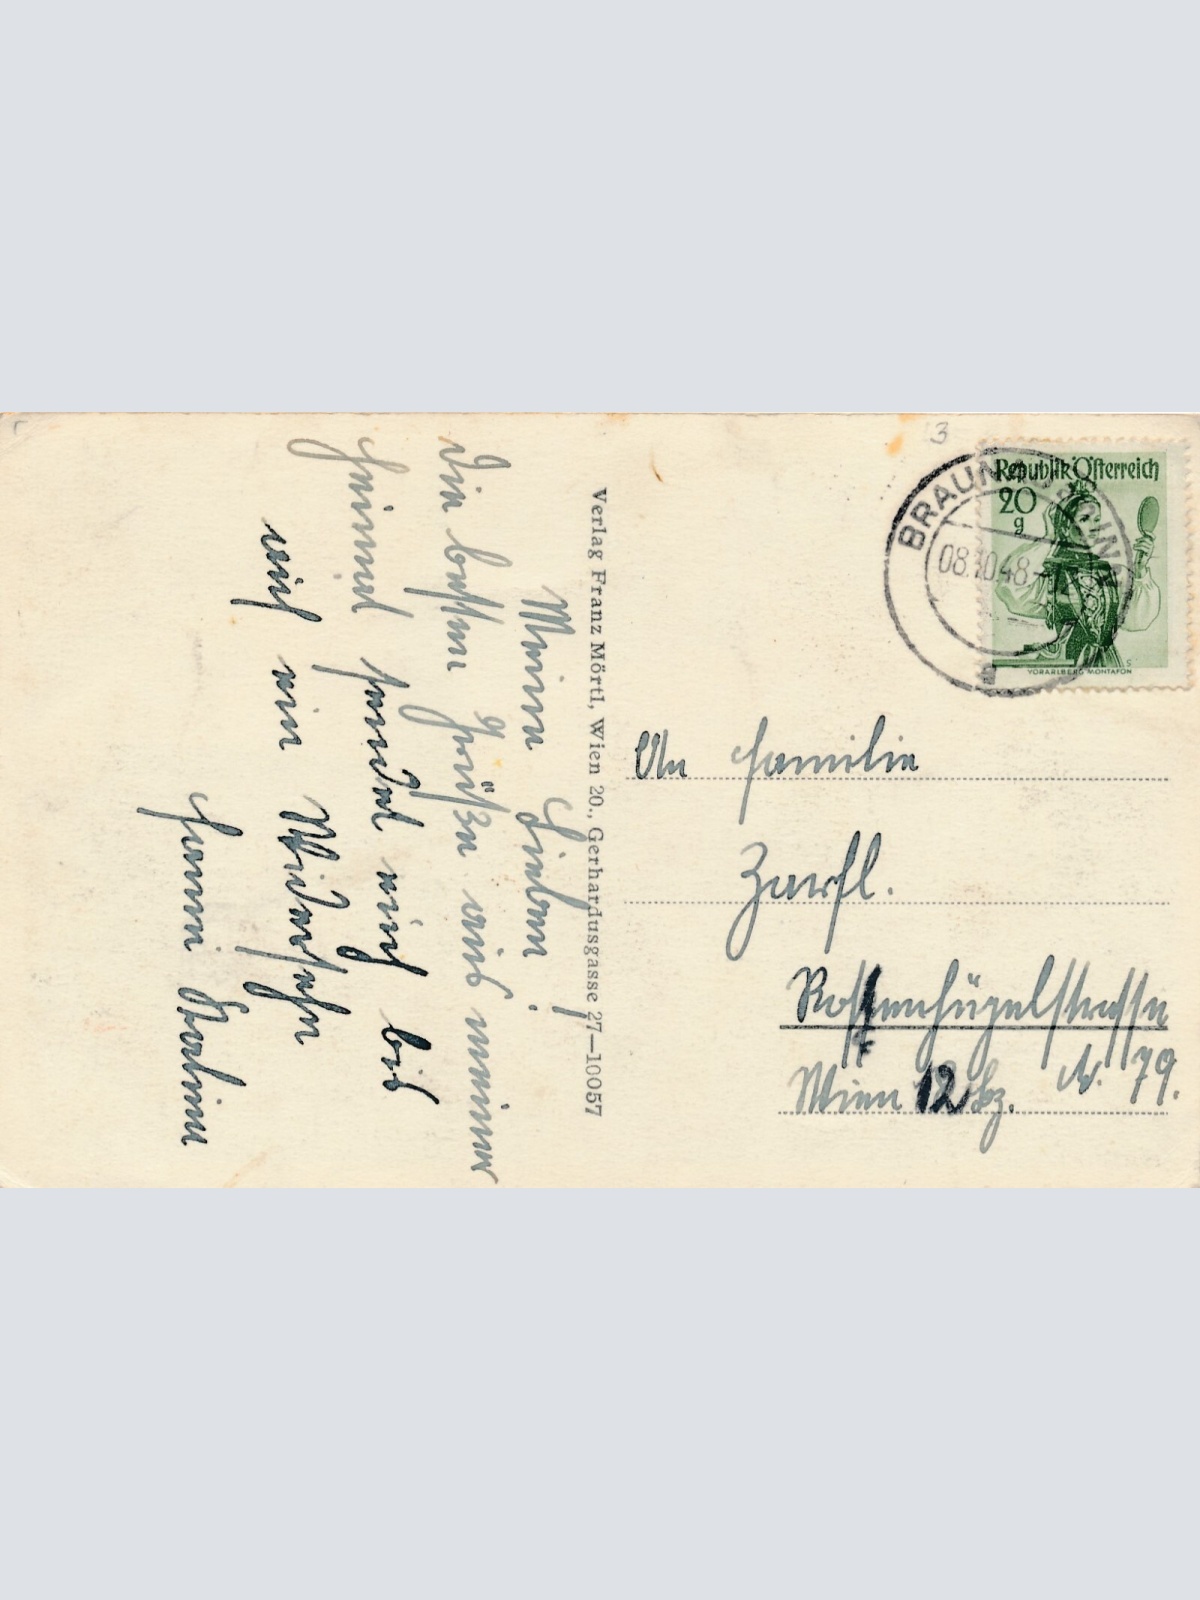 Meine Lieben!
Die besten Grüße aus meiner
Heimat sendet euch bis
auf ein Widersehn
Hanni
Verlag Franz Mörtl, Wien 20., Gerhardusgasse 27—10057
3
Republik Österreich
20
g
VORARLBERG MONTAFON
BRAUNAU INN
08.10.48
An Familie
Zarfl.
Rosenhügelstrasse
Wien 12 Bz. N. 79.